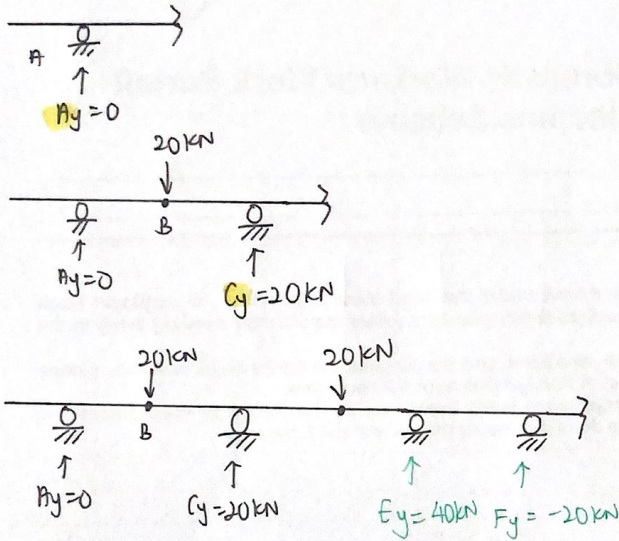 A
Ay=0
20kN
B
Ay=0
Cy=20kN
20kN 20kN
B
Ay=0 Cy=20kN Ey=40kN Fy=-20kN